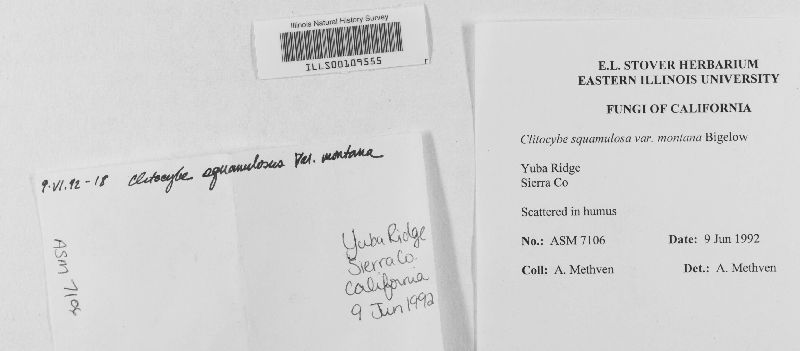 Illinois Natural History Survey
ILLS00109555
9·VI.92-18 Clitocybe squamulosus Var. montana
ASM 7106
Yuba Ridge
Sierra Co.
California
9 Jun 1992
E.L. STOVER HERBARIUM
EASTERN ILLINOIS UNIVERSITY
FUNGI OF CALIFORNIA
Clitocybe squamulosa var. montana Bigelow
Yuba Ridge
Sierra Co
Scattered in humus
No.: ASM 7106 Date: 9 Jun 1992
Coll: A. Methven Det.: A. Methven